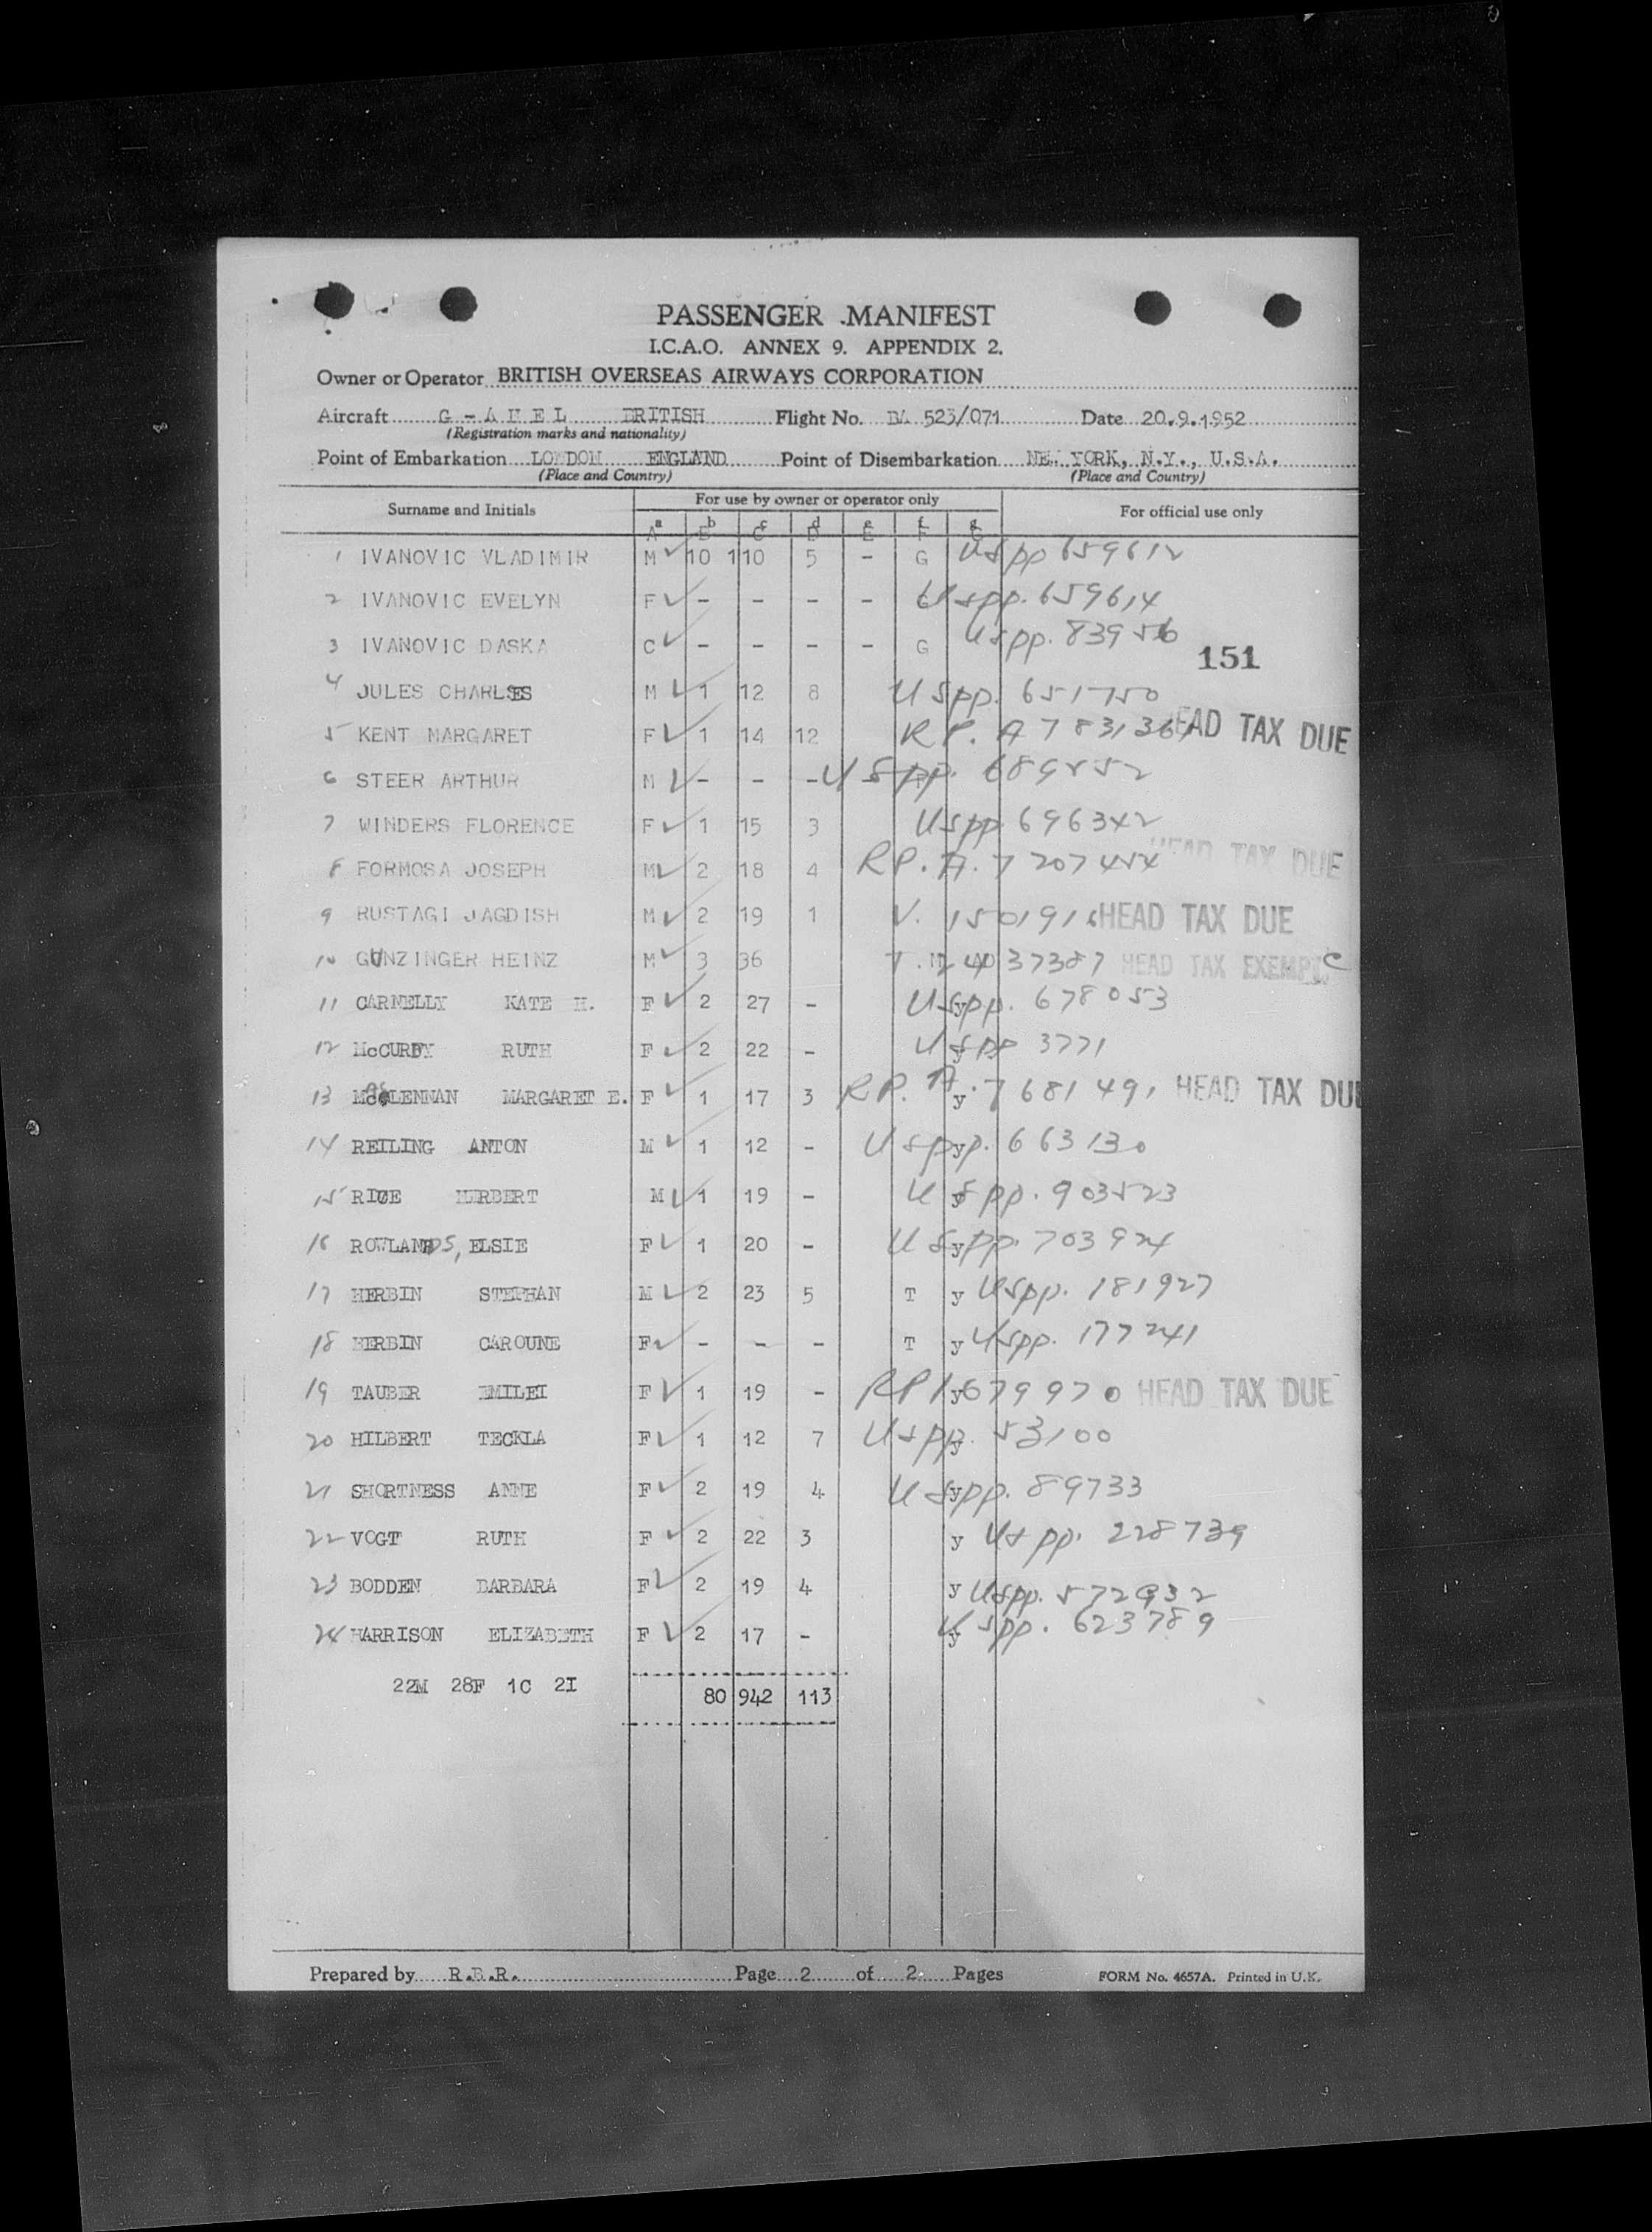 PASSENGER MANIFEST
I.C.A.O. ANNEX 9. APPENDIX 2.
Owner or Operator BRITISH OVERSEAS AIRWAYS CORPORATION
Aircraft G - A K E L BRITISH Flight No. BA 523/071 Date 20.9.1952
(Registration marks and nationality)
Point of Embarkation LONDON ENGLAND Point of Disembarkation NEW YORK, N.Y., U.S.A.
(Place and Country) (Place and Country)
Surname and Initials For use by owner or operator only For official use only
a b c d e f g
A B C D E F G
1 IVANOVIC VLADIMIR M 10 110 5 - G USpp 659612
2 IVANOVIC EVELYN F - - - - G USpp. 659614
3 IVANOVIC DASKA C - - - - G USpp. 83956
151
4 JULES CHARLES M 1 12 8 USpp. 651750
5 KENT MARGARET F 1 14 12 R P. A 783136 HEAD TAX DUE
6 STEER ARTHUR M - - - USpp. 689852
7 WINDERS FLORENCE F 1 15 3 USpp 696342
8 FORMOSA JOSEPH M 2 18 4 RP. A. 7207454 HEAD TAX DUE
9 RUSTAGI JAGDISH M 2 19 1 V. 150191 HEAD TAX DUE
10 GUNZINGER HEINZ M 3 36 37387 HEAD TAX EXEMPT C
11 CARNELLY KATE H. F 2 27 - y USpp. 678053
12 McCURDY RUTH F 2 22 - y USpp 3771
13 McCLENNAN MARGARET E. F 1 17 3 y RP. A. 7681491 HEAD TAX DUE
14 REILING ANTON M 1 12 - y USpp. 663130
15 RICE HERBERT M 1 19 - y USpp. 903523
16 ROWLANDS, ELSIE F 1 20 - y USpp. 703924
17 HERBIN STEPHAN M 2 23 5 T y USpp. 181927
18 HERBIN CAROUNE F - - - T y USpp. 177241
19 TAUBER EMILEI F 1 19 - y RP 1679970 HEAD TAX DUE
20 HILBERT TECKLA F 1 12 7 y USpp. 53100
21 SHORTNESS ANNE F 2 19 4 y USpp. 89733
22 VOGT RUTH F 2 22 3 y USpp. 228739
23 BODDEN BARBARA F 2 19 4 y USpp. 572932
24 HARRISON ELIZABETH F 2 17 - y USpp. 623789
22M 28F 1C 2I 80 942 113
Prepared by R.B.R. Page 2 of 2 Pages FORM No. 4657A. Printed in U.K.